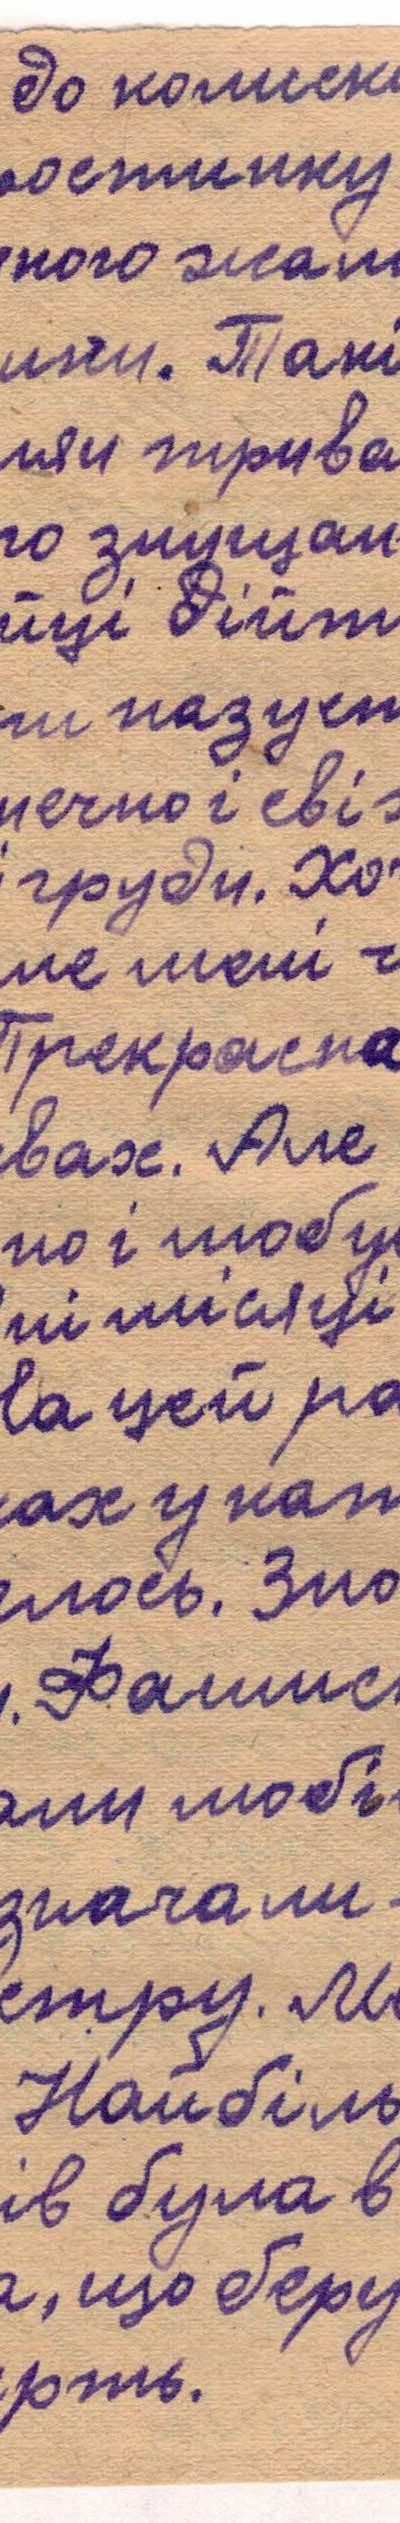 до колиск
остинку
ного жал
ики. Такі
ляи трива
го знущан
йці дійт
ти назует
нечно і сві
і груди. Хо
не мені
Прекрасна
вах. Але
но і мобу
ні місяці
На цей ра
ках у кат
елось. Зно
. Фашис
али мобі
значали
стру. Ме
Найбіль
ів була в
а, що беру
ерть.